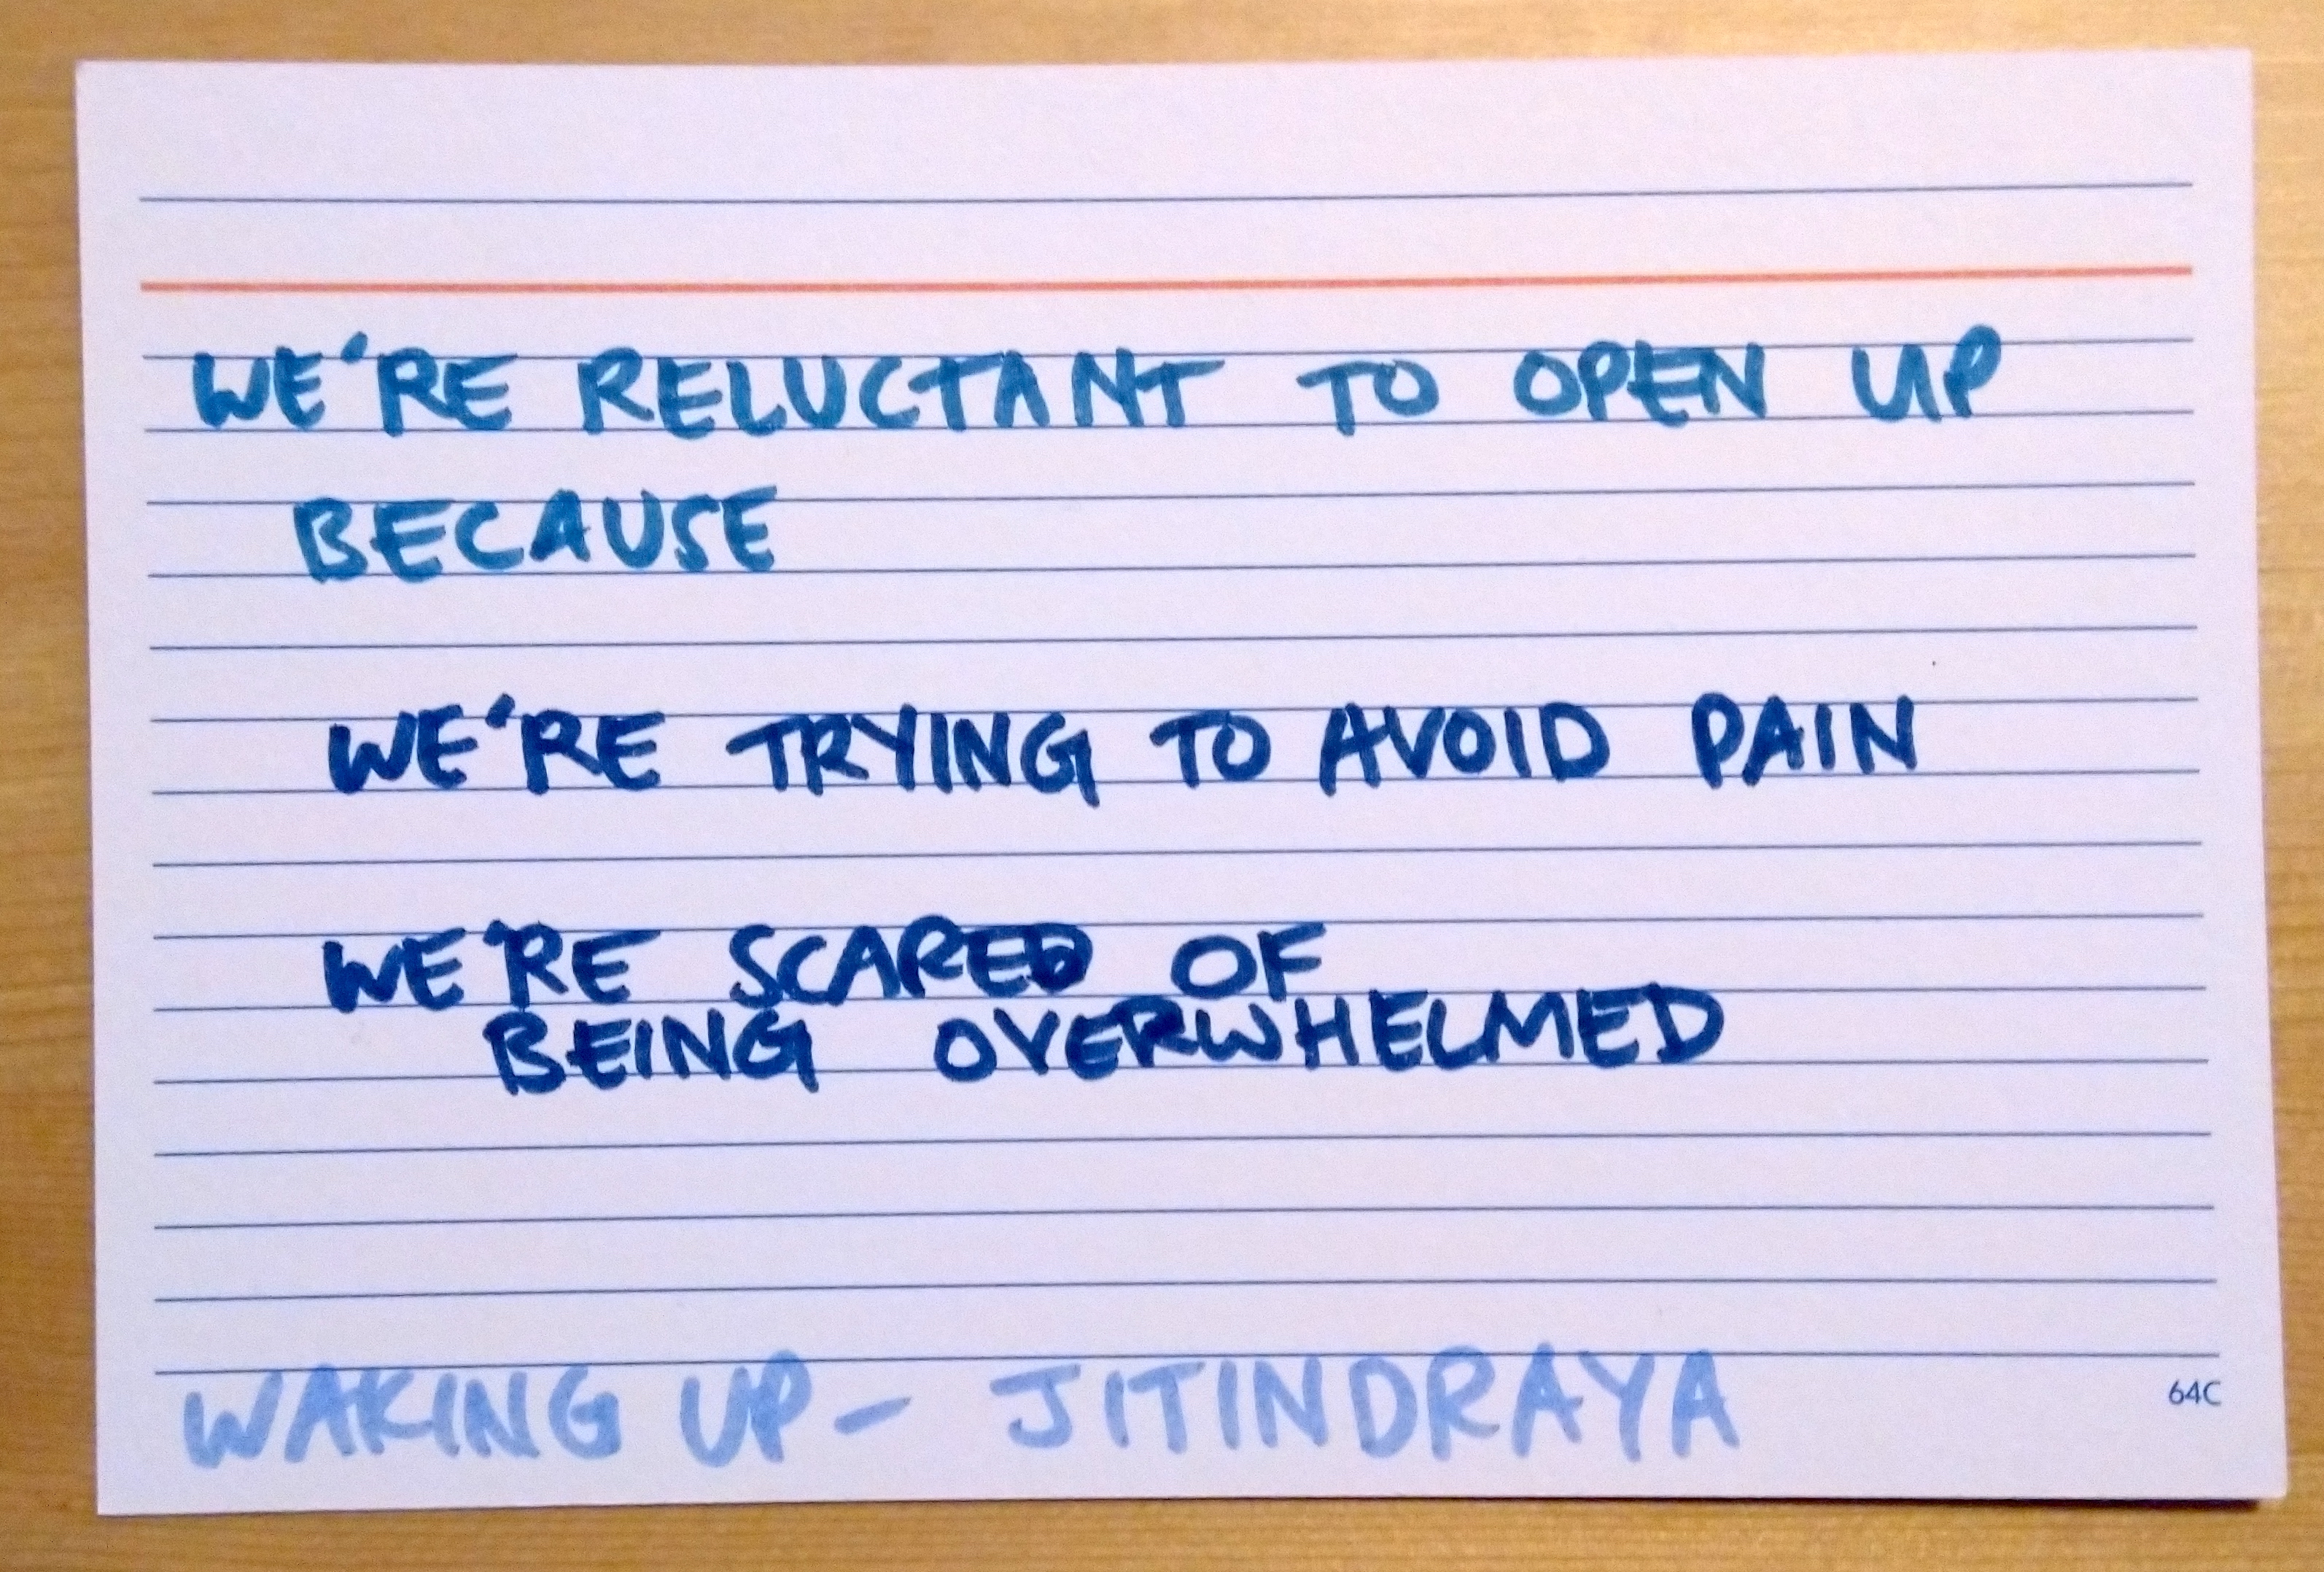 WE'RE RELUCTANT TO OPEN UP
BECAUSE
WE'RE TRYING TO AVOID PAIN
WE'RE SCARED OF
BEING OVERWHELMED
WAKING UP - JITINDRAYA
64C